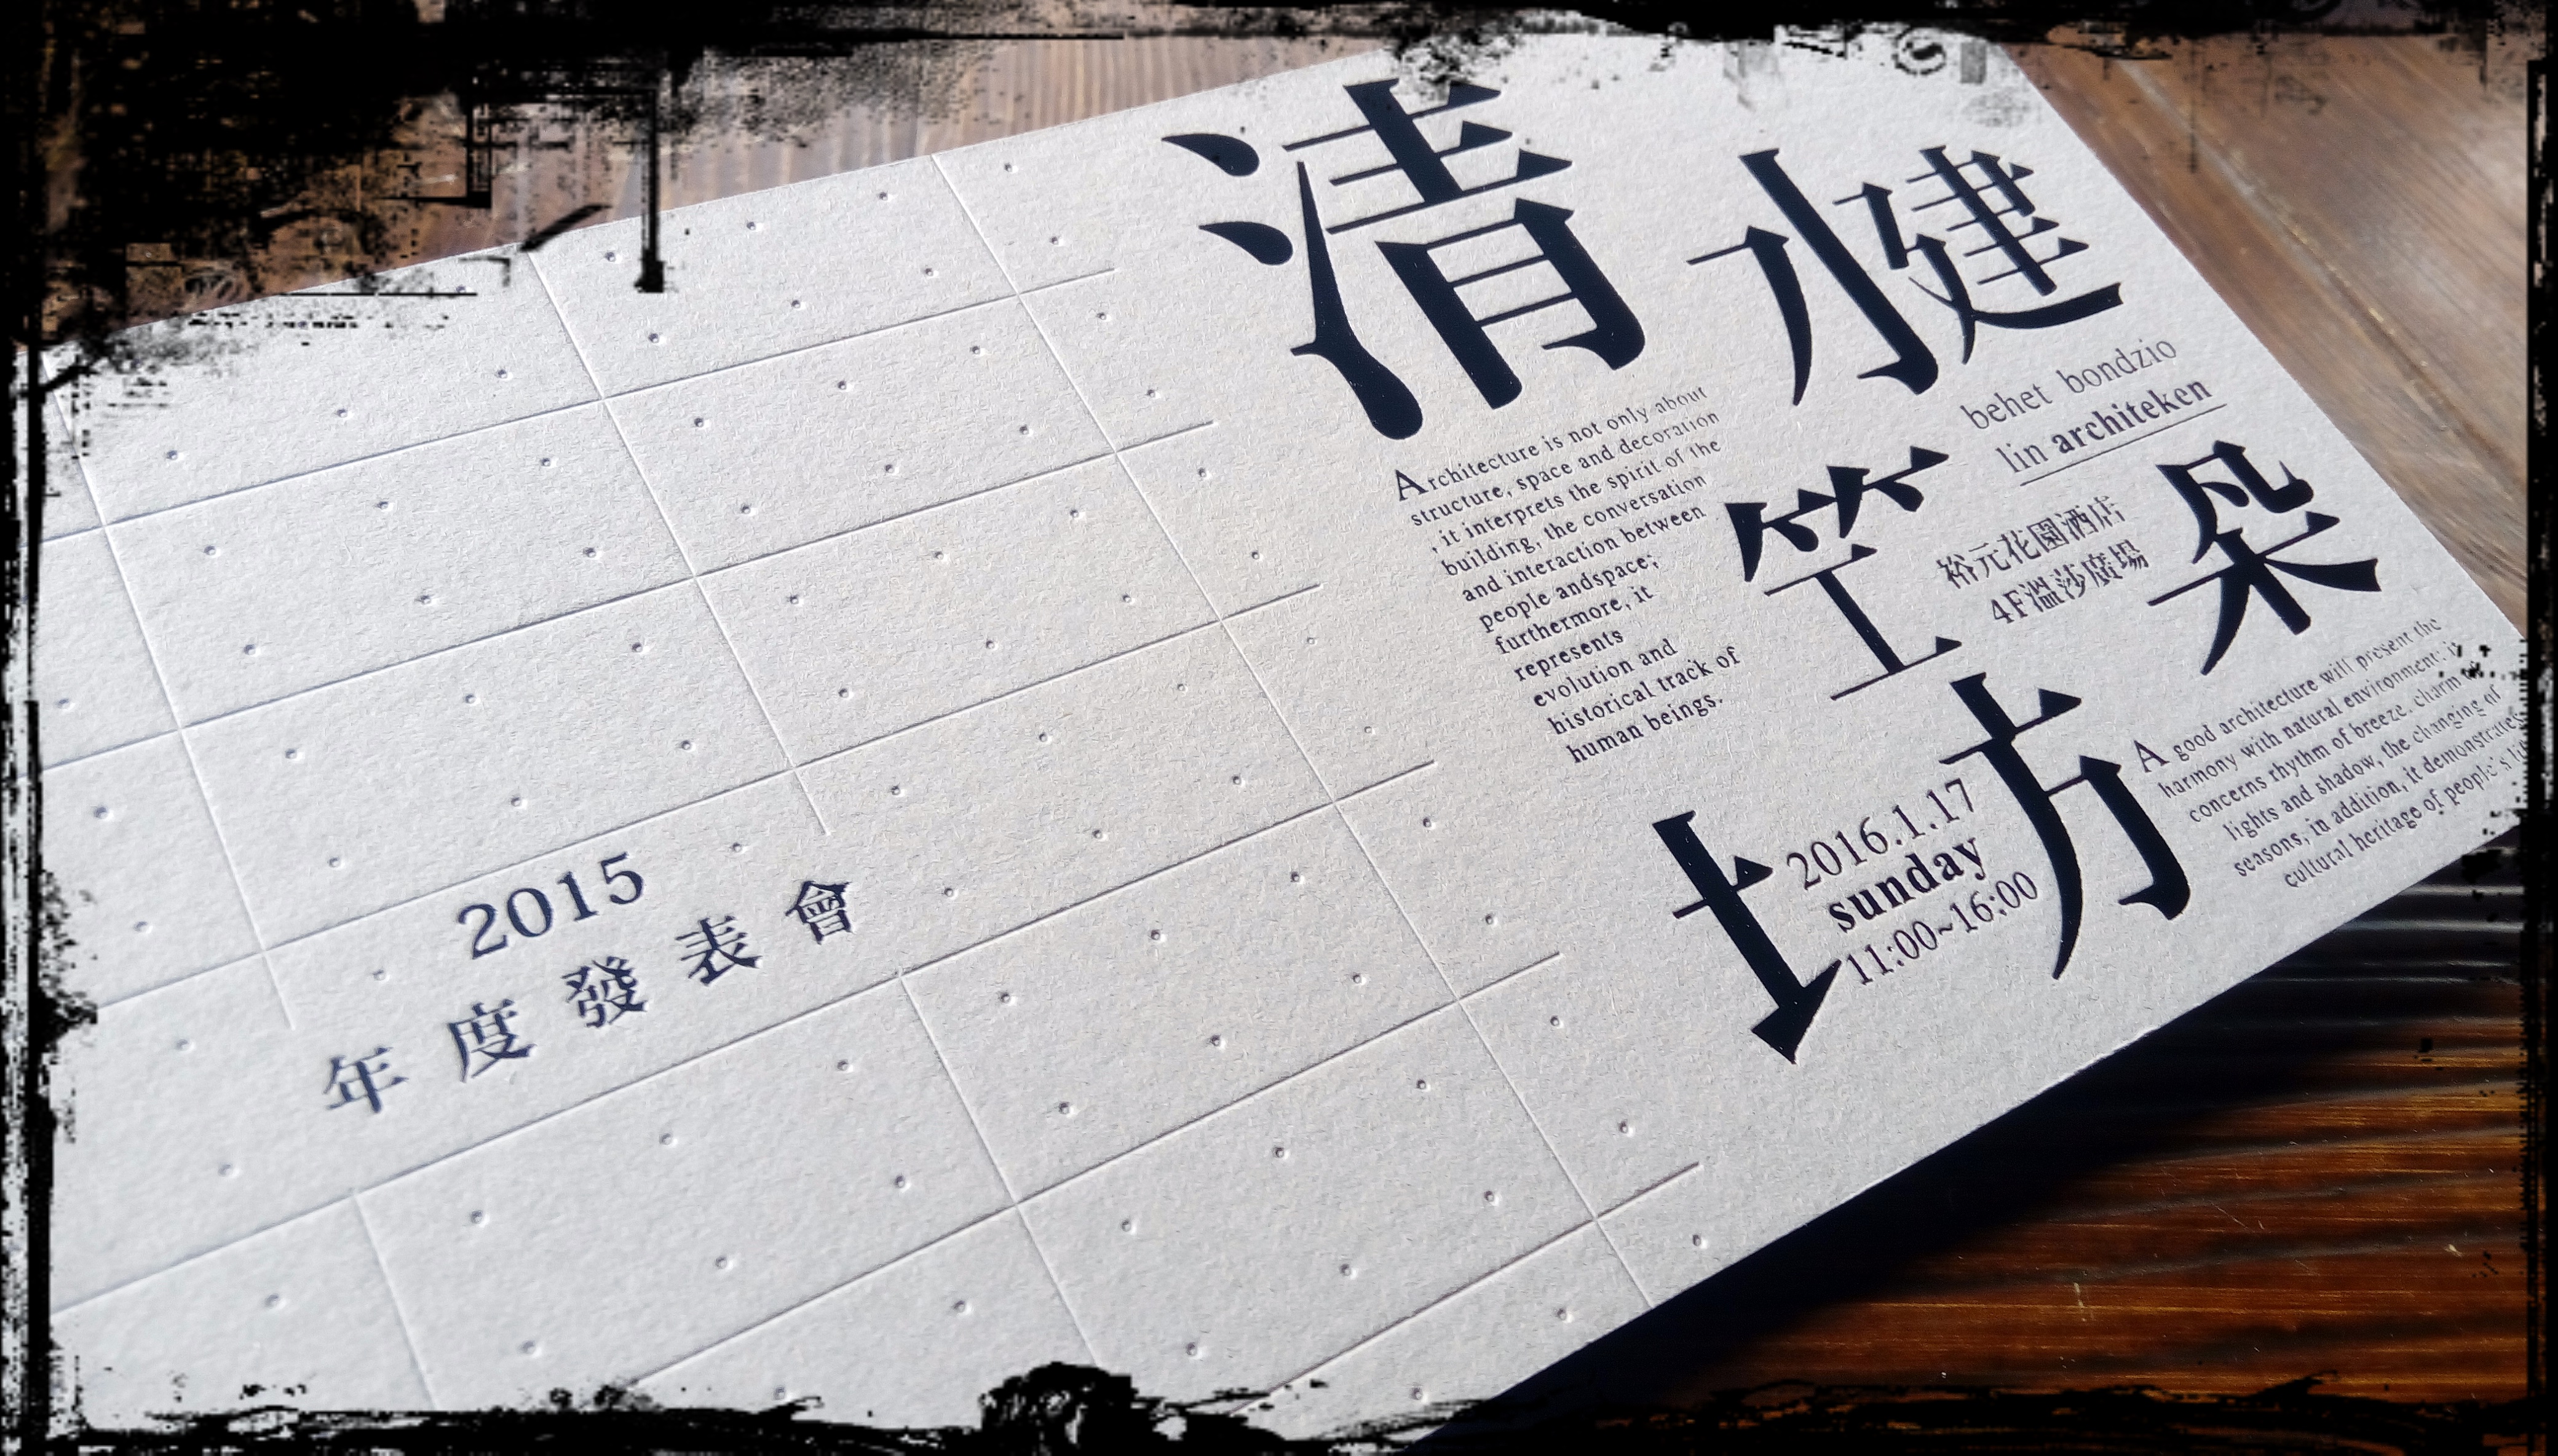 清水建築工坊
behet bondzio
lin architeken
裕元花園酒店
4F溫莎廣場
Architecture is not only about
structure, space and decoration
, it interprets the spirit of the
building, the conversation
and interaction between
people andspace;
furthermore, it
represents
evolution and
historical track of
human beings.
A good architecture will present the
harmony with natural environment: it
concerns rhythm of breeze, charm
lights and shadow, the changing of
seasons, in addition, it demonstrates
cultural heritage of people's
2016.1.17
sunday
11:00~16:00
2015
年度發表會